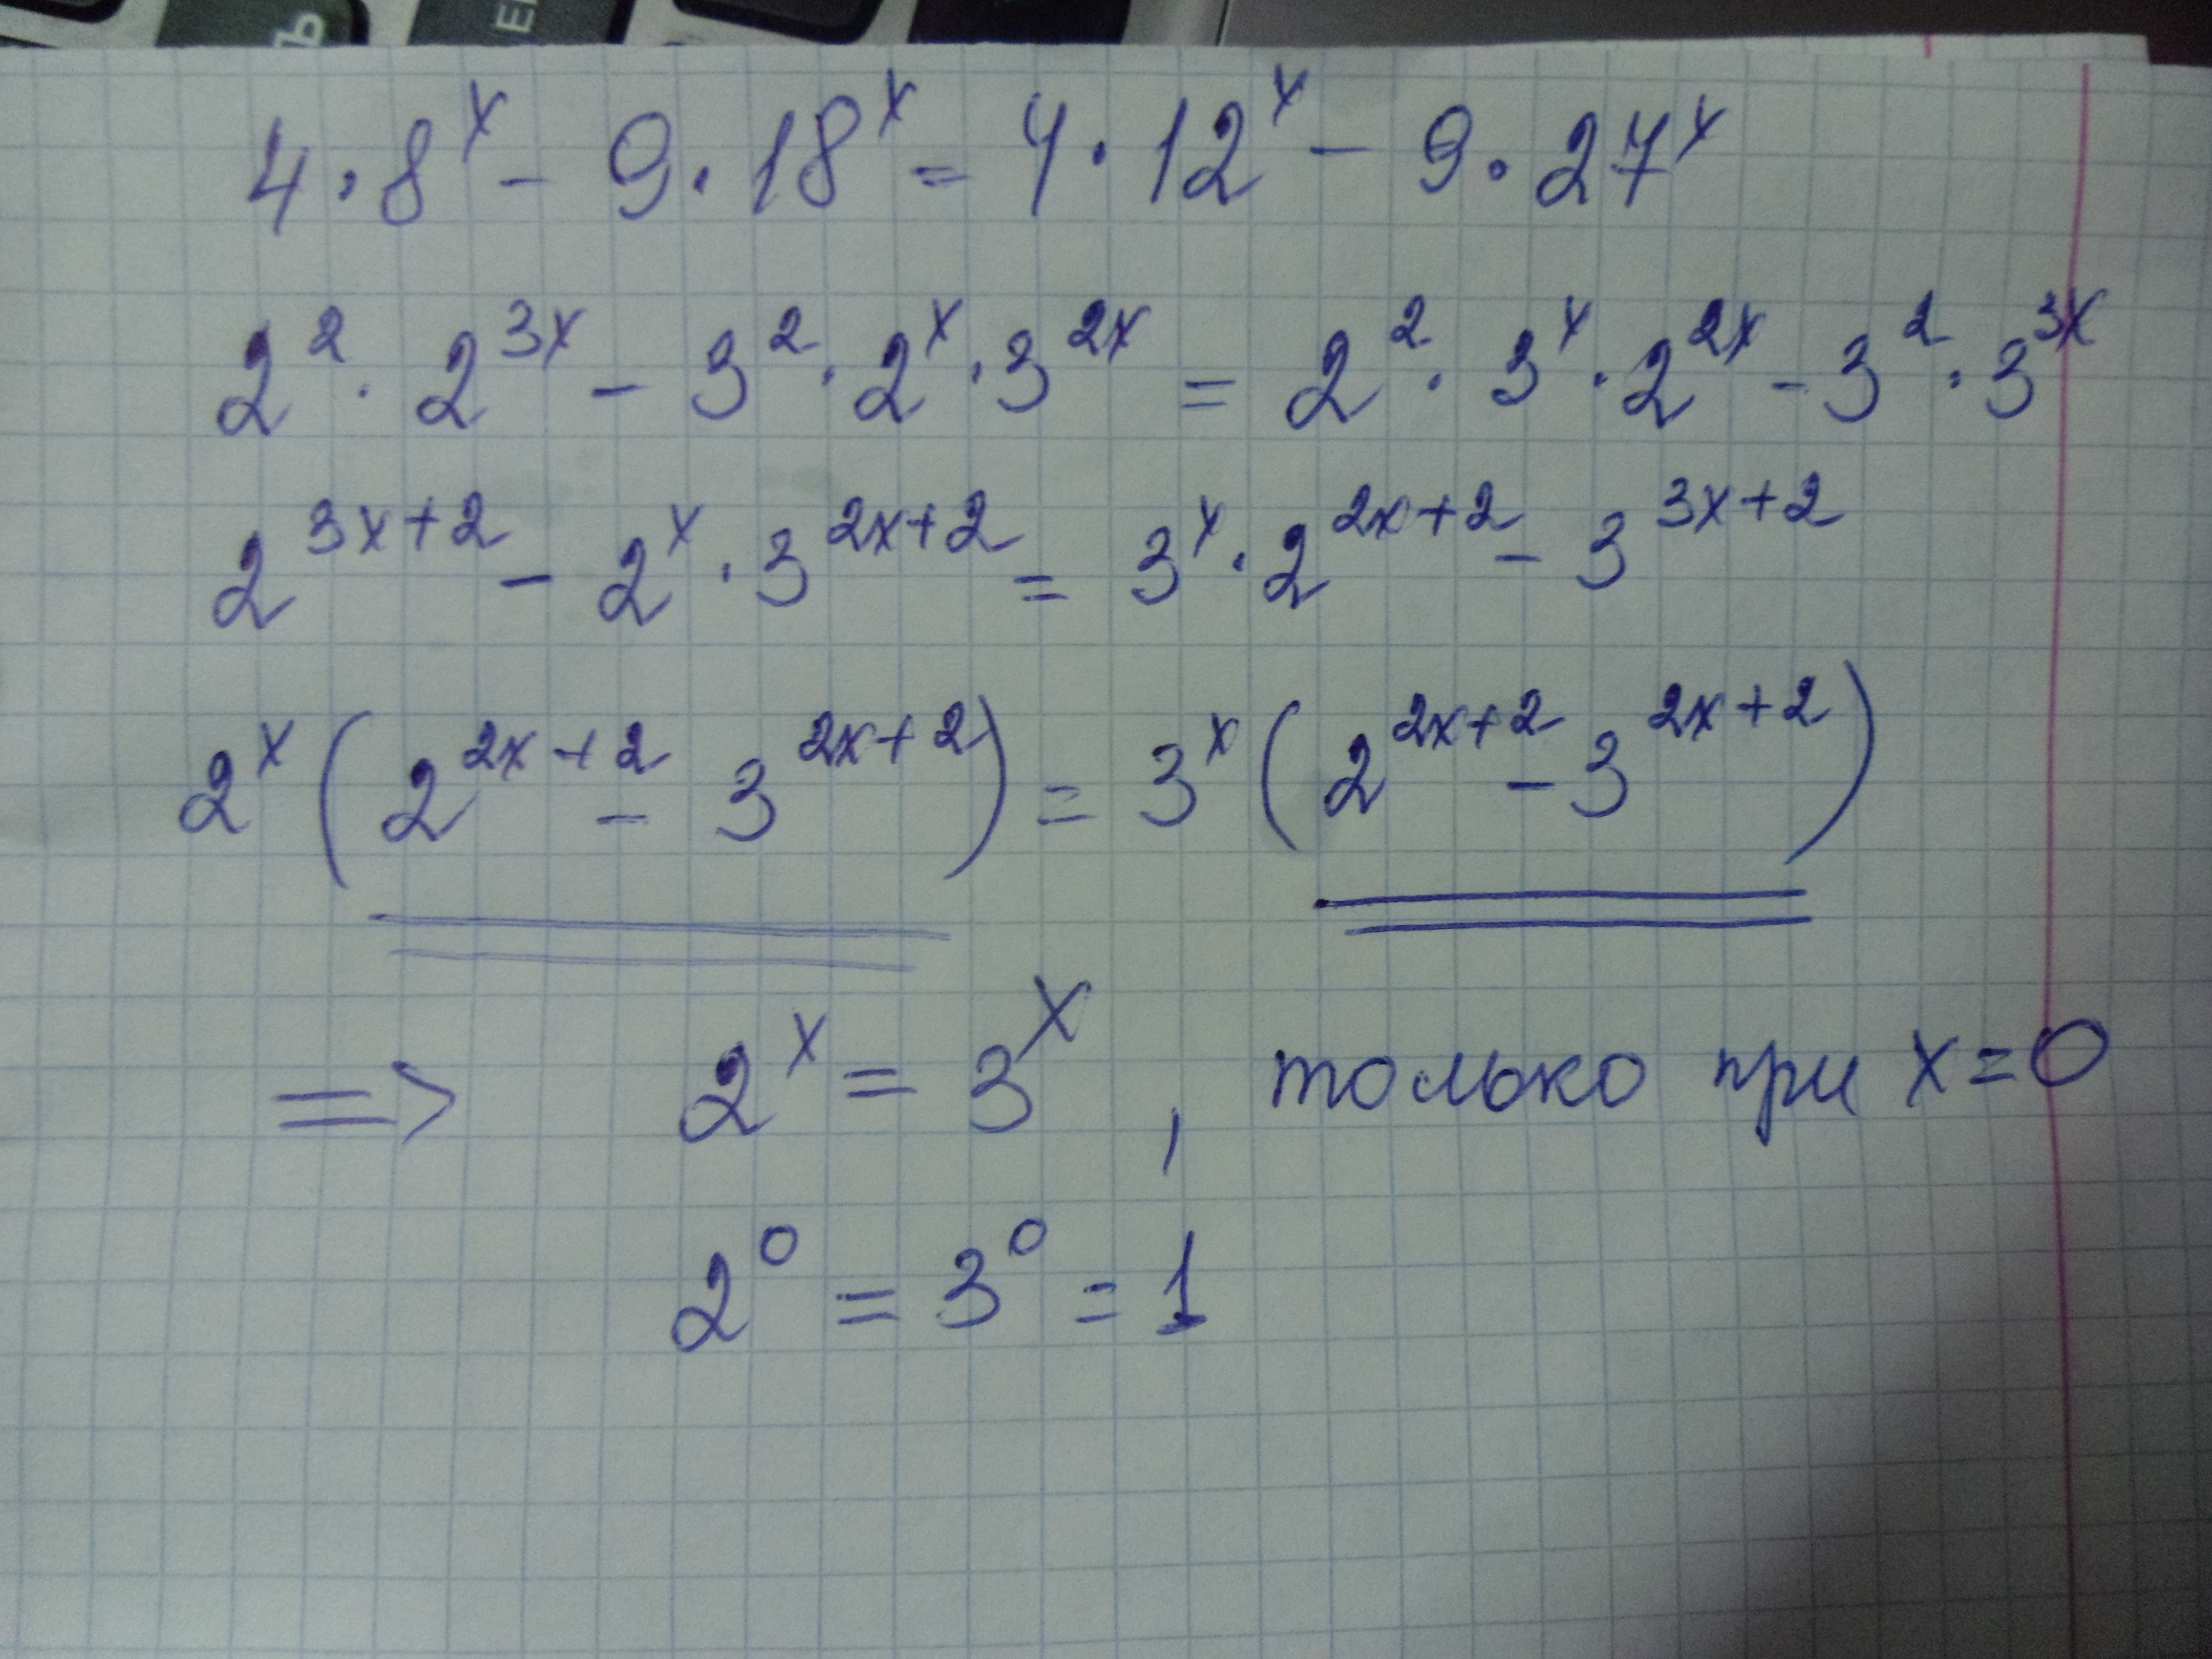 4 · 8^x - 9 · 18^x = 4 · 12^x - 9 · 27^x
2^2 · 2^{3x} - 3^2 · 2^x · 3^{2x} = 2^2 · 3^x · 2^{2x} - 3^2 · 3^{3x}
2^{3x+2} - 2^x · 3^{2x+2} = 3^x · 2^{2x+2} - 3^{3x+2}
2^x (2^{2x+2} - 3^{2x+2}) = 3^x (2^{2x+2} - 3^{2x+2})
=> 2^x = 3^x , только при x=0
2^0 = 3^0 = 1